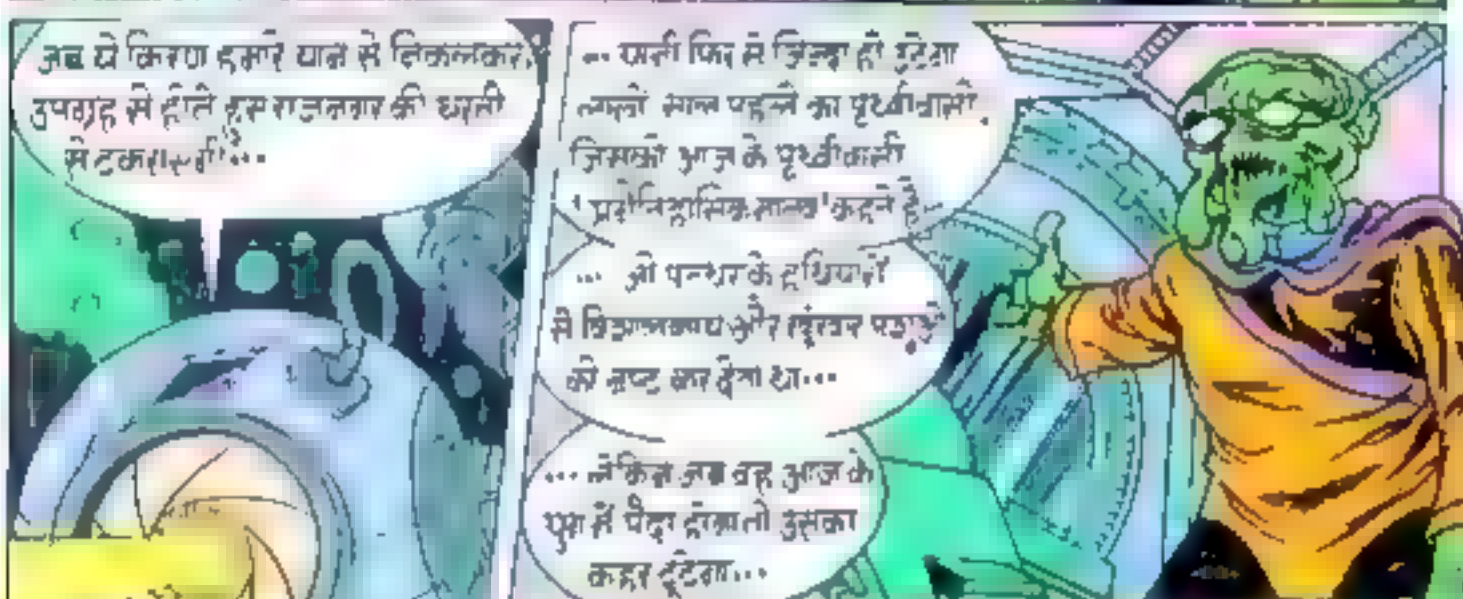 अब ये किरण हमारे यान से निकलकर,
उपग्रह से होते हुए राजनगर की धरती
से टकराएगी...
... यानी फिर से जिन्दा हो उठेगा
लाखों साल पहले का पृथ्वीवासी,
जिसको आज के पृथ्वीवासी
'प्रागैतिहासिक मानव' कहते हैं...
... जो पत्थर के हथियारों
से विशालकाय और खूंखार पशुओं
को नष्ट कर देता था...
... लेकिन जब वह आज के
युग में पैदा होगा तो उसका
कहर टूटेगा...